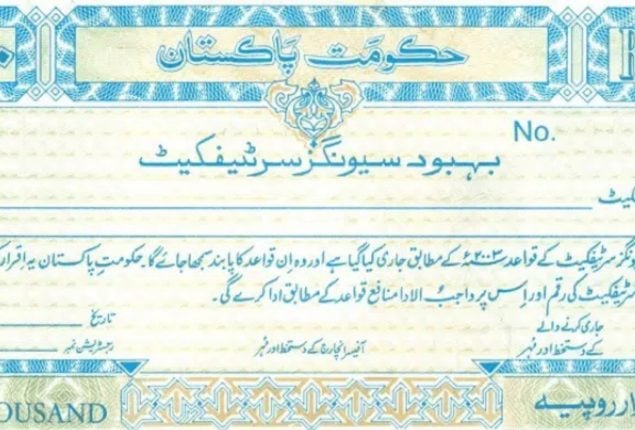 حکومت پاکستان
No.
بہبود سیونگز سرٹیفکیٹ
سرٹیفکیٹ کے قواعد ۲۰۰۳ء کے مطابق جاری کیا گیا ہے اور وہ اِن قواعد کا پابند سمجھا جائے گا۔ حکومتِ پاکستان یہ اقرار
سرٹیفکیٹ کی رقم اور اِس پر واجبُ الادا منافع قواعد کے مطابق ادا کرے گی۔
جاری کرنے والے تاریخ
کے دستخط اور مُہر آفیسر انچارج کے دستخط اور مُہر رجسٹریشن نمبر
OUSAND روپیے